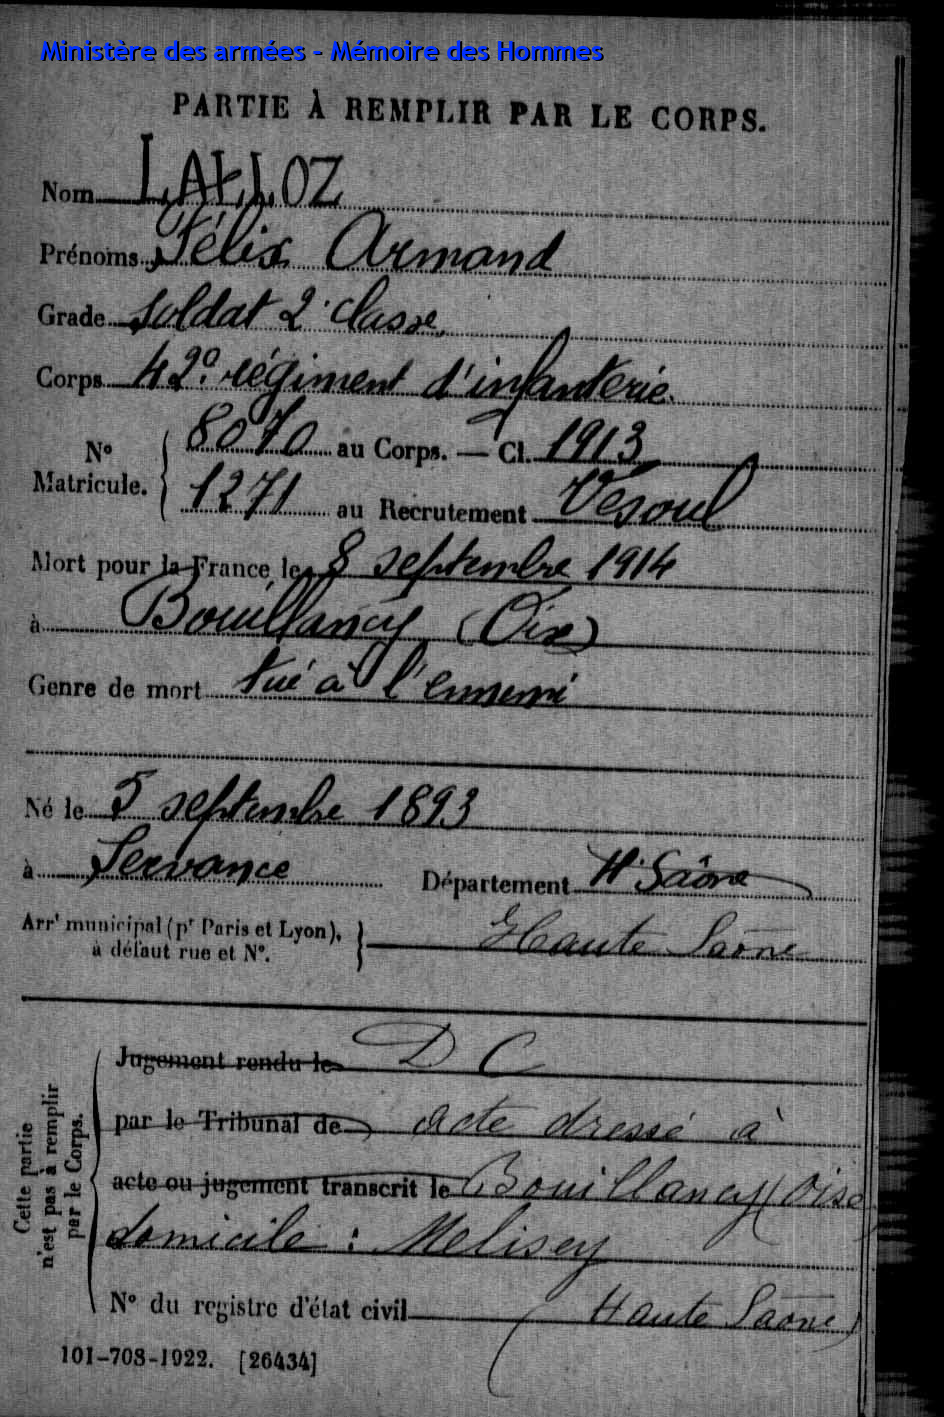 Ministère des armées - Mémoire des Hommes
PARTIE À REMPLIR PAR LE CORPS.
Nom LALLOZ
Prénoms Félix Armand
Grade soldat 2e classe
Corps 42e régiment d'infanterie.
N° Matricule. { 8070 au Corps. — Cl. 1913
1271 au Recrutement Vesoul
Mort pour la France le 8 septembre 1914
à Bouillancy (Oise)
Genre de mort tué à l'ennemi
Né le 5 septembre 1893
à Servance Département Hte Saône
Arrt municipal (pr Paris et Lyon), à défaut rue et N°. } Haute Saône
Cette partie n'est pas à remplir par le Corps.
Jugement rendu le D C
par le Tribunal de acte dressé à
acte ou jugement transcrit le Bouillancy (Oise
domicile : Melisey
N° du registre d'état civil (Haute Saône)
101-708-1922. [26434]